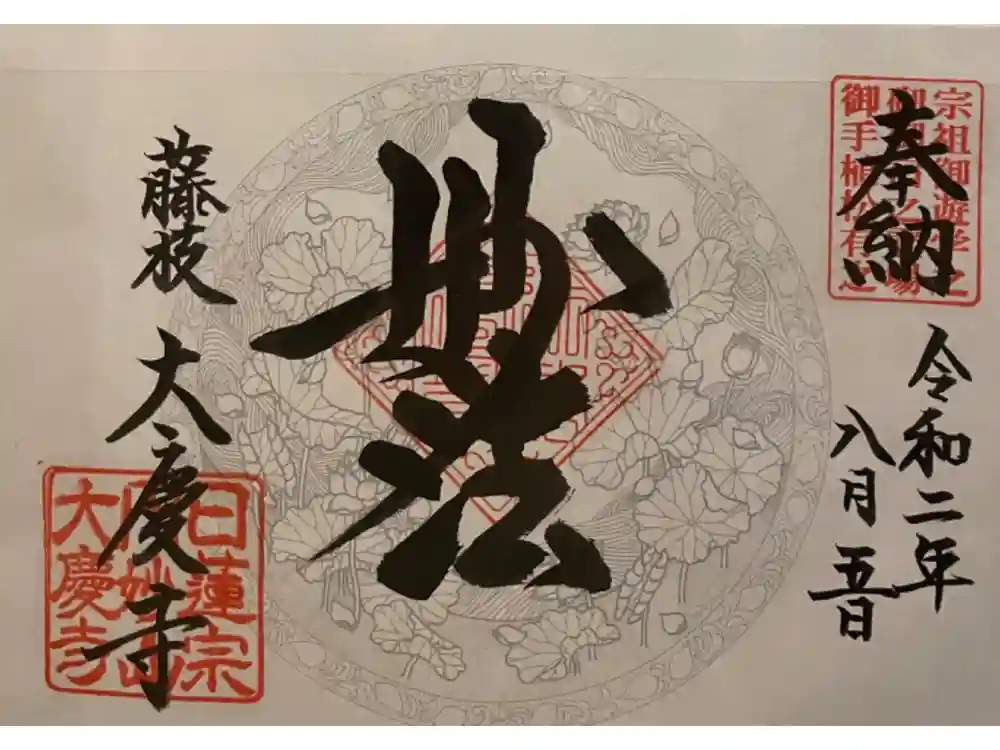 奉納
宗祖御遊学之
御手植
令和二年
八月五日
妙法
藤枝
大慶寺
日蓮宗
大慶寺